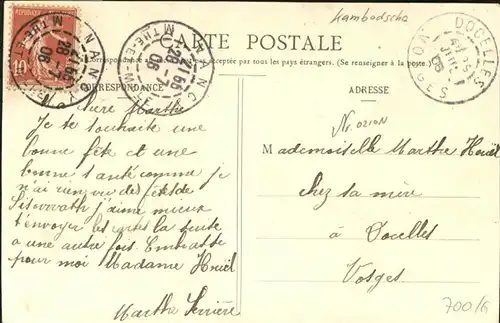 Kambodscha
CARTE POSTALE
acceptée par tous les pays étrangers. (Se renseigner à la poste).
CORRESPONDANCE
ADRESSE
NANCY
MTHE-ET-MLLE
28-7
06
NANCY
MTHE-E-M
28-7
06
DOCELLES
VOSGES
10
Ma chère Marthe
Je te souhaite une
bonne fête et une
bonne santé comme je
n'ai rien vu de fêtes de
Sisowath j'aime mieux
t'envoyer les cartes la suite
a une autre fois. Embrasse
pour moi Madame Houël
Marthe Ferrière
Mademoiselle Marthe Houël
chez sa mère
à Docelles
Vosges
700/6